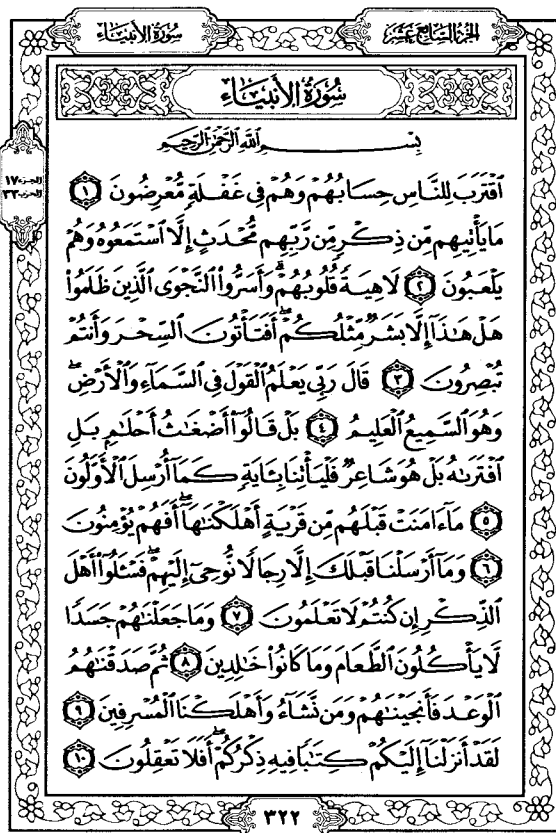 الجزء السابع عشر
سورة الأنبياء
سُورَةُ الأَنبِيَاءِ
بِسْمِ اللَّهِ الرَّحْمَٰنِ الرَّحِيمِ
الجزء ١٧
الحزب ٣٣
ٱقْتَرَبَ لِلنَّاسِ حِسَابُهُمْ وَهُمْ فِي غَفْلَةٍ مُّعْرِضُونَ ١
مَا يَأْتِيهِم مِّن ذِكْرٍ مِّن رَّبِّهِم مُّحْدَثٍ إِلَّا ٱسْتَمَعُوهُ وَهُمْ
يَلْعَبُونَ ٢ لَاهِيَةً قُلُوبُهُمْ ۗ وَأَسَرُّوا۟ ٱلنَّجْوَى ٱلَّذِينَ ظَلَمُوا۟
هَلْ هَٰذَآ إِلَّا بَشَرٌ مِّثْلُكُمْ ۖ أَفَتَأْتُونَ ٱلسِّحْرَ وَأَنتُمْ
تُبْصِرُونَ ٣ قَالَ رَبِّي يَعْلَمُ ٱلْقَوْلَ فِي ٱلسَّمَآءِ وَٱلْأَرْضِ ۖ
وَهُوَ ٱلسَّمِيعُ ٱلْعَلِيمُ ٤ بَلْ قَالُوٓا۟ أَضْغَٰثُ أَحْلَٰمٍ بَلِ
ٱفْتَرَىٰهُ بَلْ هُوَ شَاعِرٌ فَلْيَأْتِنَا بِـَٔايَةٍ كَمَآ أُرْسِلَ ٱلْأَوَّلُونَ
٥ مَآ ءَامَنَتْ قَبْلَهُم مِّن قَرْيَةٍ أَهْلَكْنَٰهَآ ۖ أَفَهُمْ يُؤْمِنُونَ
٦ وَمَآ أَرْسَلْنَا قَبْلَكَ إِلَّا رِجَالًا نُّوحِىٓ إِلَيْهِمْ ۖ فَسْـَٔلُوٓا۟ أَهْلَ
ٱلذِّكْرِ إِن كُنتُمْ لَا تَعْلَمُونَ ٧ وَمَا جَعَلْنَٰهُمْ جَسَدًا
لَّا يَأْكُلُونَ ٱلطَّعَامَ وَمَا كَانُوا۟ خَٰلِدِينَ ٨ ثُمَّ صَدَقْنَٰهُمُ
ٱلْوَعْدَ فَأَنجَيْنَٰهُمْ وَمَن نَّشَآءُ وَأَهْلَكْنَا ٱلْمُسْرِفِينَ ٩
لَقَدْ أَنزَلْنَآ إِلَيْكُمْ كِتَٰبًا فِيهِ ذِكْرُكُمْ ۖ أَفَلَا تَعْقِلُونَ ١٠
٣٢٢